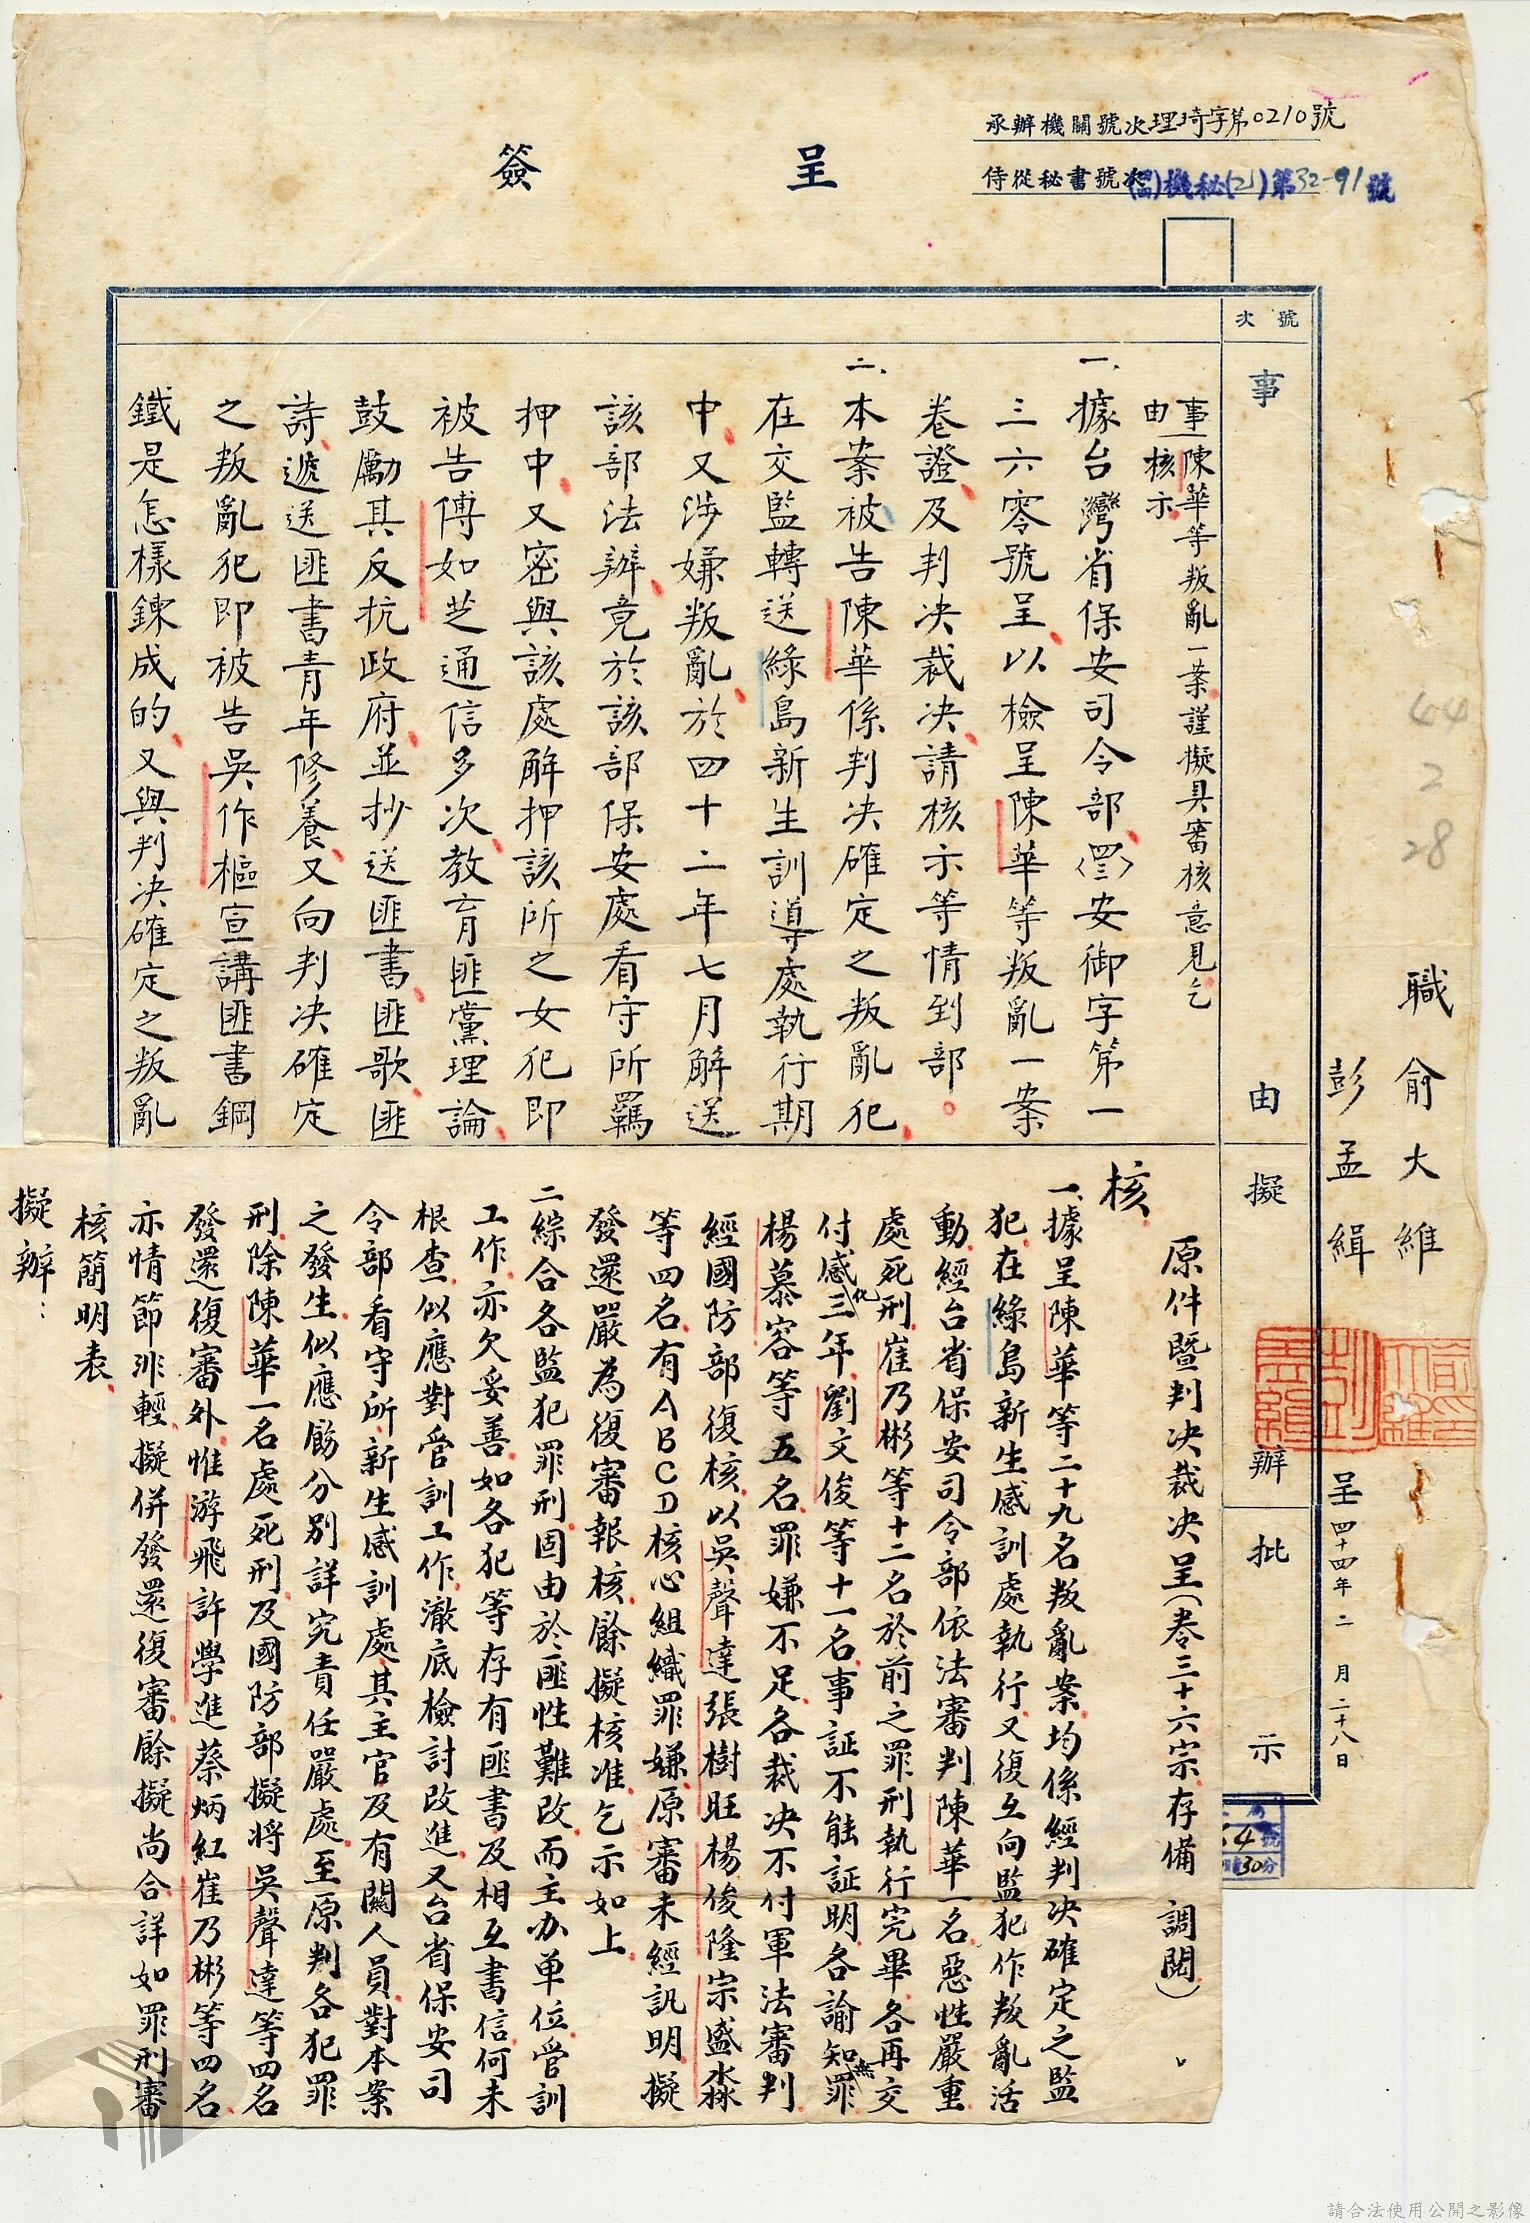 承辦機關號次理琦字第0210號
侍從秘書號次機秘(2)第32-91號
簽呈
號次
事由
擬辦
批示
職俞大維
彭孟緝
呈四十四年二月二十八日
44
2
28
事由
陳華等叛亂一案謹擬具審核意見乞
核示
一、據台灣省保安司令部安御字第一
三六零號呈以檢呈陳華等叛亂一案
卷證及判決裁決請核示等情到部。
二、本案被告陳華係判決確定之叛亂犯
在交監轉送綠島新生訓導處執行期
中又涉嫌叛亂於四十二年七月解送
該部法辦竟於該部保安處看守所羈
押中又密與該處解押該所之女犯即
被告傅如芝通信多次教育匪黨理論
鼓勵其反抗政府並抄送匪書匪歌匪
詩遞送匪書青年修養又向判決確定
之叛亂犯即被告吳作樞宣講匪書鋼
鐵是怎樣鍊成的又與判決確定之叛亂
原件暨判決裁決呈(卷三十六宗存備調閱)
核
一據呈陳華等二十九名叛亂案均係經判決確定之監
犯在綠島新生感訓處執行又復互向監犯作叛亂活
動經台省保安司令部依法審判陳華一名惡性嚴重
處死刑崔乃彬等十二名於前之罪刑執行完畢各再交
付感化三年劉文俊等十一名事証不能証明各諭知無罪
楊慕容等五名罪嫌不足各裁決不付軍法審判
經國防部復核以吳聲達張樹旺楊俊隆宗盛淼
等四名有ABCD核心組織罪嫌原審未經訊明擬
發還嚴為復審報核餘擬核准乞示如上
二綜合各監犯罪刑固由於匪性難改而主办單位管訓
工作亦欠妥善如各犯等存有匪書及相互書信何未
根查似應對管訓工作澈底檢討改進又台省保安司
令部看守所新生感訓處其主官及有關人員對本案
之發生似應飭分別詳究責任嚴處至原判各犯罪
刑除陳華一名處死刑及國防部擬將吳聲達等四名
發還復審外惟游飛許學進蔡炳紅崔乃彬等四名
亦情節非輕擬併發還復審餘擬尚合詳如罪刑審
核簡明表
擬辦：
號
分
30
請合法使用公開之影像